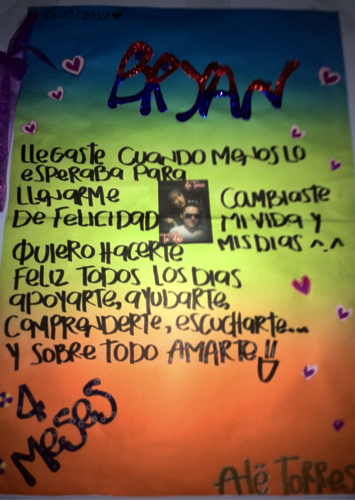 BRYAN
LLEGASTE CUANDO MENOS LO
ESPERABA PARA
LLENARME
DE FELICIDAD
CAMBIASTE
MI VIDA Y
MIS DIAS ^.^
QUIERO HACERTE
FELIZ TODOS LOS DIAS
APOYARTE, AYUDARTE,
COMPRENDERTE, ESCUCHARTE...
Y SOBRE TODO AMARTE!!
4
MESES
Alë TORRES